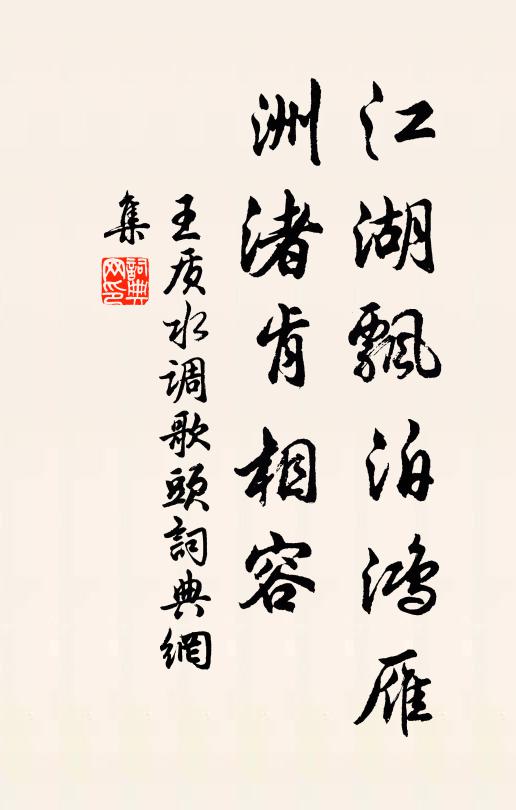 江湖飄泊鸿雁
洲渚肯相容
王质水调歌頭詞典網
集
詞典网印